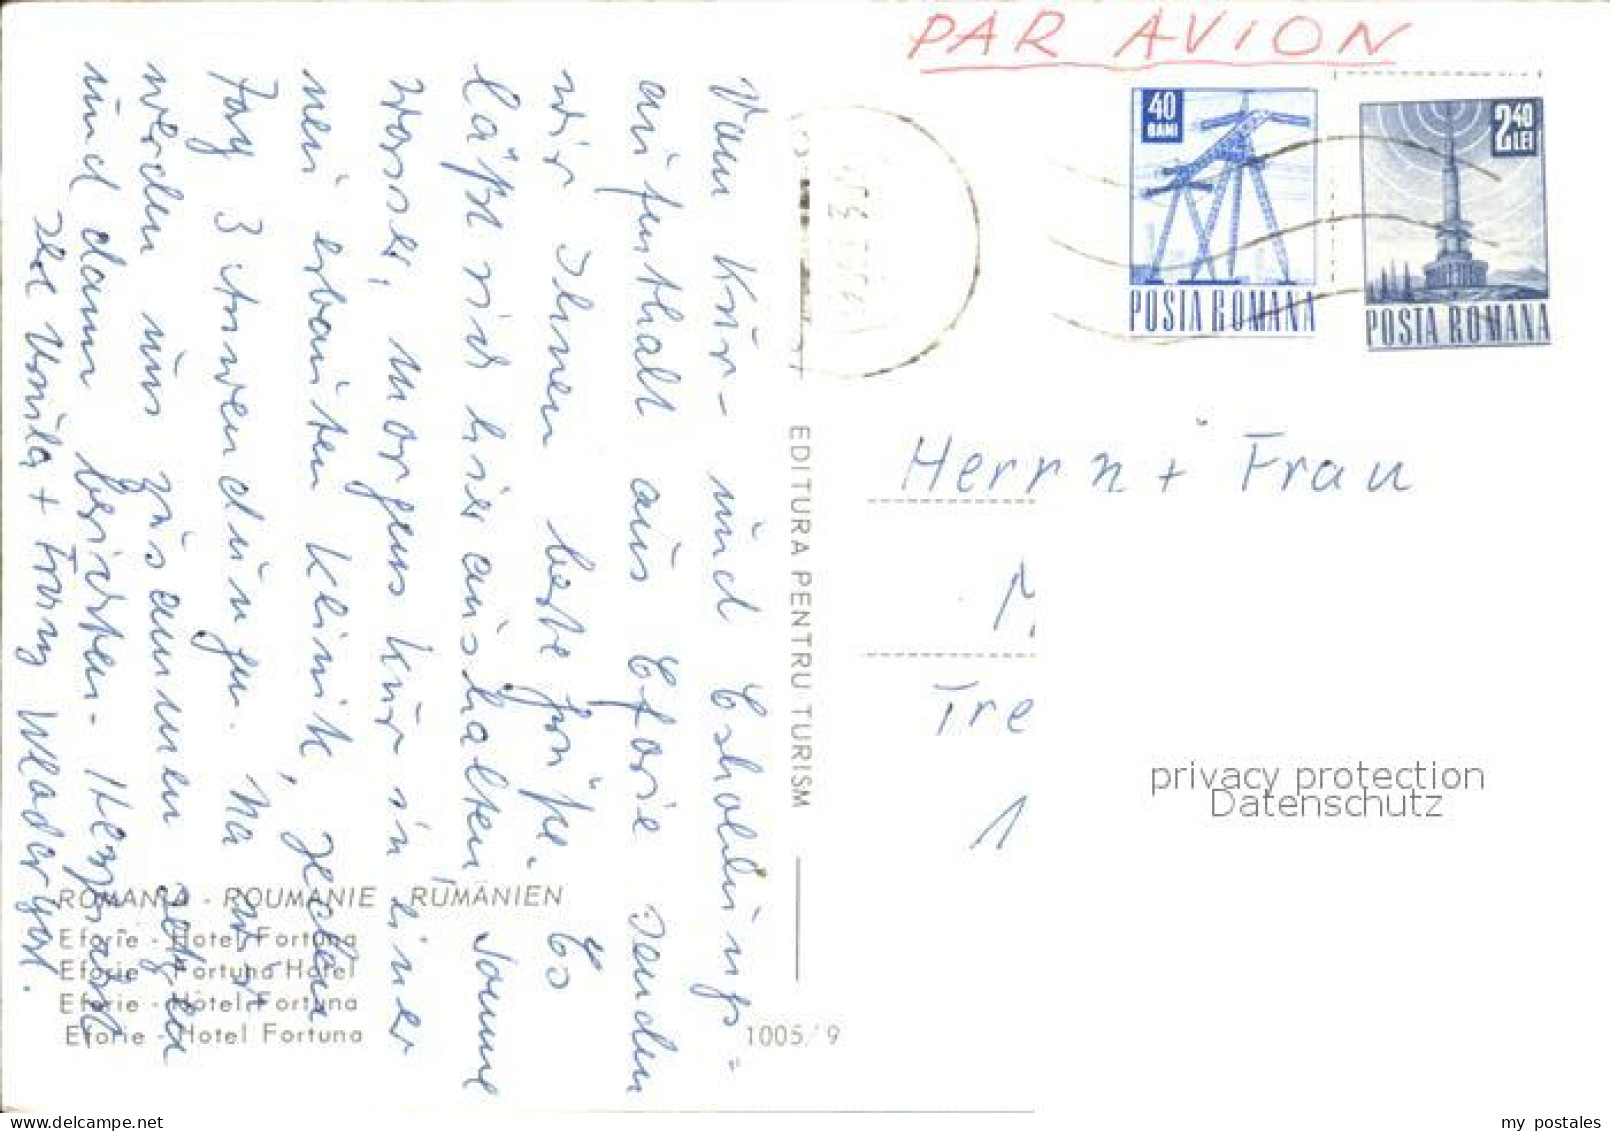 PAR AVION
40
BANI
POSTA ROMANA
2,40
LEI
POSTA ROMANA
Vom Kur- und Erholungs=
aufenthalt aus Eforie senden
wir Ihnen beste Grüße. Es
läßt sich hier aushalten, Sonne
Wasser, morgens Kur in einer
neu erbauten Klinik, jeden
Tag 3 Anwendungen. Na wir
werden uns zusammen setzen
und dann berichten. Herzlichst
Ihre Ursula + Franz
EDITURA PENTRU TURISM
ROMANIA - ROUMANIE - RUMÄNIEN
Eforie - Hotel Fortuna
Eforie - Fortuna Hotel
Eforie - Hôtel Fortuna
Eforie - Hotel Fortuna
1005/9
Herrn + Frau
Tre
1
privacy protection
Datenschutz
www.delcampe.net
my_postales